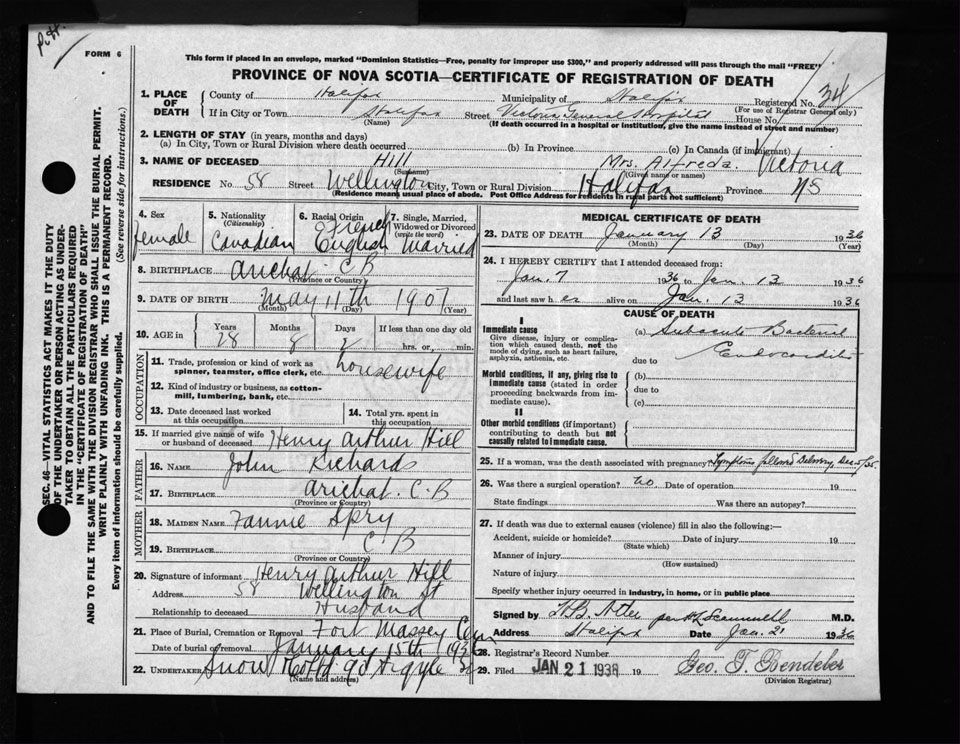 FORM 6
This form if placed in an envelope, marked "Dominion Statistics—Free, penalty for improper use $300," and properly addressed will pass through the mail "FREE"
PROVINCE OF NOVA SCOTIA—CERTIFICATE OF REGISTRATION OF DEATH
1. PLACE OF DEATH County of Halifax Municipality of Halifax Registered No. 34
(For use of Registrar General only)
If in City or Town Halifax Street Victoria General Hospital House No.
(Name) (If death occurred in a hospital or institution, give the name instead of street and number)
2. LENGTH OF STAY (in years, months and days)
(a) In City, Town or Rural Division where death occurred (b) In Province (c) In Canada (if immigrant)
3. NAME OF DECEASED Hill Mrs. Alfreda Victoria
(Surname) (Given name or names)
RESIDENCE No. 58 Street Wellington City, Town or Rural Division Halifax Province NS
(Residence means usual place of abode. Post Office Address for residents in rural parts not sufficient)
4. Sex female
5. Nationality (Citizenship) Canadian
6. Racial Origin French English
7. Single, Married, Widowed or Divorced (write the word) Married
8. BIRTHPLACE Arichat C B
(Province or Country)
9. DATE OF BIRTH May 11th 1907
(Month) (Day) (Year)
10. AGE in Years 28 Months 8 Days 2 If less than one day old hrs. or min.
OCCUPATION
11. Trade, profession or kind of work as spinner, teamster, office clerk, etc. housewife
12. Kind of industry or business, as cotton-mill, lumbering, bank, etc.
13. Date deceased last worked at this occupation
14. Total yrs. spent in this occupation
15. If married give name of wife or husband of deceased Henry Arthur Hill
FATHER
16. NAME John Richards
17. BIRTHPLACE Arichat. C-B
(Province or Country)
MOTHER
18. MAIDEN NAME Fannie Spry
19. BIRTHPLACE C B
(Province or Country)
20. Signature of informant Henry Arthur Hill
Address 58 Wellington St
Relationship to deceased Husband
21. Place of Burial, Cremation or Removal Fort Massey Cem
Date of burial or removal January 15th 1936
22. UNDERTAKER Snow & Co Ltd 90 Argyle St
(Name and address)
MEDICAL CERTIFICATE OF DEATH
23. DATE OF DEATH January 13 1936
(Month) (Day) (Year)
24. I HEREBY CERTIFY that I attended deceased from:
Jan. 7 1936 to Jan. 13 1936
and last saw her alive on Jan. 13 1936
CAUSE OF DEATH
I
Immediate cause
Give disease, injury or complication which caused death, not the mode of dying, such as heart failure, asphyxia, asthenia, etc.
(a) Subacute Bacterial
due to Endocarditis
Morbid conditions, if any, giving rise to immediate cause (stated in order proceeding backwards from immediate cause).
(b)
due to
(c)
II
Other morbid conditions (if important) contributing to death but not causally related to immediate cause.
25. If a woman, was the death associated with pregnancy? Symptoms followed Delivery Dec 5/35.
26. Was there a surgical operation? No. Date of operation 19
State findings Was there an autopsy?
27. If death was due to external causes (violence) fill in also the following:—
Accident, suicide or homicide? Date of injury 19
(State which)
Manner of injury
(How sustained)
Nature of injury
Specify whether injury occurred in industry, in home, or in public place
Signed by H.B. Atlee per M.D.
Address Halifax Date Jan. 21 1936
28. Registrar's Record Number
29. Filed JAN 21 1936 19 Geo. T. Bendeler
(Division Registrar)
SEC. 46—VITAL STATISTICS ACT MAKES IT THE DUTY
OF THE UNDERTAKER OR PERSON ACTING AS UNDER-
TAKER TO OBTAIN ALL THE PARTICULARS REQUIRED
IN THE "CERTIFICATE OF REGISTRATION OF DEATH"
AND TO FILE THE SAME WITH THE DIVISION REGISTRAR WHO SHALL ISSUE THE BURIAL PERMIT.
WRITE PLAINLY WITH UNFADING INK. THIS IS A PERMANENT RECORD.
Every item of information should be carefully supplied. (See reverse side for instructions.)